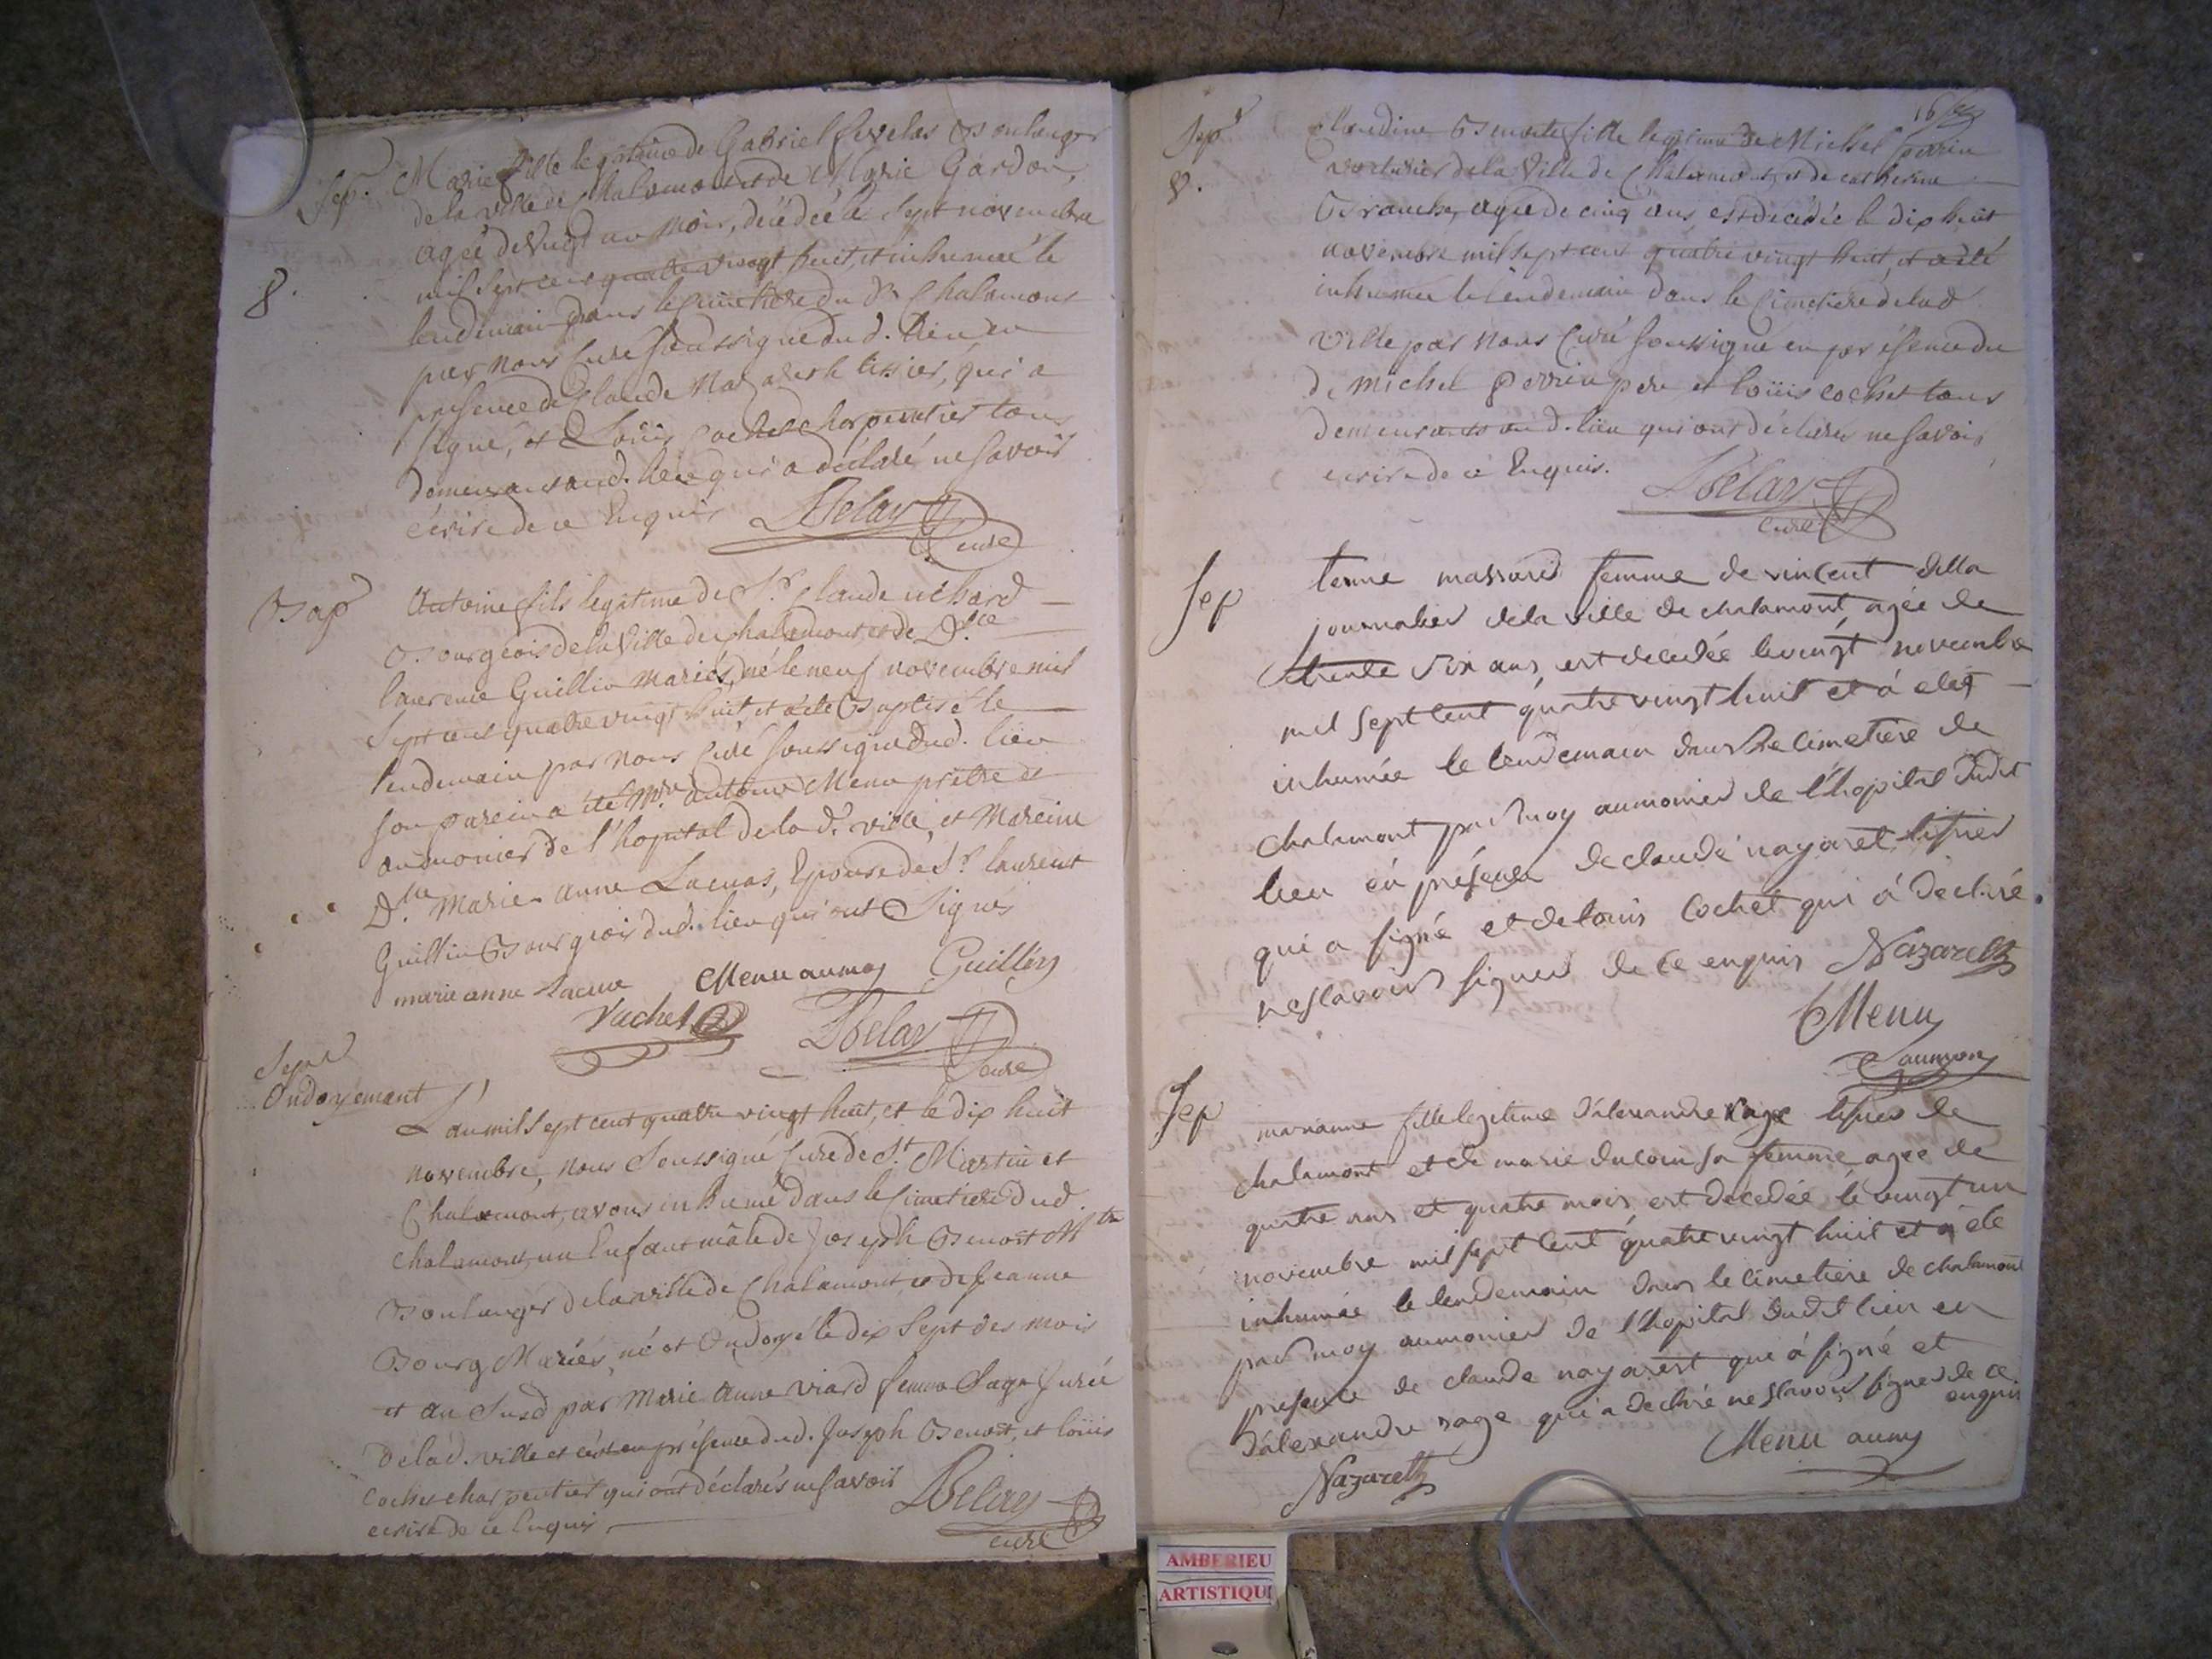 Sep.
8.
Marie fille legitime de Gabriel Boulanger
de la ville de Chalamont et de Marie Gardon,
agée de vingt un mois, décédée le sept novembre
mil sept cent quatre vingt huit, et inhumée le
lendemain dans le cimetiere du d. Chalamont
par nous Curé soussigné dud. lieu en
présence de Claude Nazareth tissier, qui a
signé, et Loüis Cochet charpentier tous
demeurans aud. lieu qui a déclaré ne savoir
écrire de ce Enquis
Belay
curé
Bap
Antoine fils legitime de Sr. Claude
Bourgeois de la Ville de Chalamont, et de Dlle
laurence Guillin Mariés, né le neuf novembre mil
sept cent quatre vingt huit, et a été Baptisé le
lendemain par nous Curé soussigné dud. lieu
son parein a été Mre. antoine Menu prêtre et
aumonier de l'hopital de la d. ville, et Mareine
Dlle Marie-anne Lacuas, Epouse de Sr. laurent
Guillin Bourgeois dud. lieu qui ont Signés
marie anne Lacua Menu aumo Guillin
Vachet Belay
curé
Sepr
Ondoyement
L'an mil sept cent quatre vingt huit, et le dix huit
novembre, nous Soussigné Curé de St. Martin et
Chalamont, avons inhumé dans le Cimetiere dud.
Chalamont, un Enfant mâle de Joseph Benoit Mtre
Boulanger de la ville de Chalamont, et de Jeanne
Bourg Mariés, né et Ondoyé le dix Sept des mois
et an Susd par Marie Anne Viard femme Sage Jurée
de la d. ville et ce en présence dud. Joseph Benoit, et loüis
Cochet charpentier qui ont déclarés ne savoir
écrire de ce Enquis
Belay
curé
16
Sepr
8.
Claudine Benoite fille legitime de Michel Perrin
voiturier de la Ville de Chalamont, et de catherine
Branche, agée de cinq ans est décédée le dix huit
novembre mil sept cent quatre vingt huit, et a été
inhumée le lendemain dans le Cimetiere de la d
ville par nous Curé soussigné en présence du
d. michel perrin pere et loüis cochet tous
demeurants aud. lieu qui ont déclarés ne savoir
écrire de ce Enquis.
Belay
curé
Sep
massard femme de vincent
journalier de la ville de chalamont, agée de
trente six ans, est decedée le vingt novembre
mil sept cent quatre vingt huit et á eté
inhumée le lendemain dans le cimetiere de
chalamont par moy aumonier de l'hopital dudit
lieu en présence de claude nazaret tissier
qui a signé et de louis Cochet qui á declaré
ne sçavoir signer de ce enquis Nazareth
Menu
aumon
Sep
marianne fille legitime d'alexandre rage tissier de
chalamont et de marie ducoin sa femme, agée de
quatre ans et quatre mois, est decedée le vingt un
novembre mil sept cent quatre vingt huit et a eté
inhumée le lendemain dans le cimetiere de chalamont
par moy aumonier de l'hopital dudit lieu en
presence de claude nazaret qui á signé et
d'alexandre rage qui a declaré ne sçavoir signer de ce
enquis
Menu aumo
Nazareth
AMBERIEU
ARTISTIQU